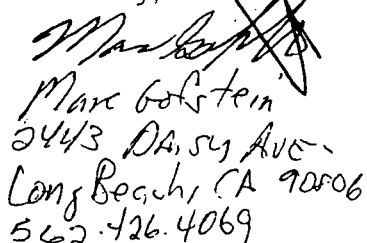 Marc Gofstein
2443 Daisy Ave.
Long Beach, CA 90806
562.426.4069